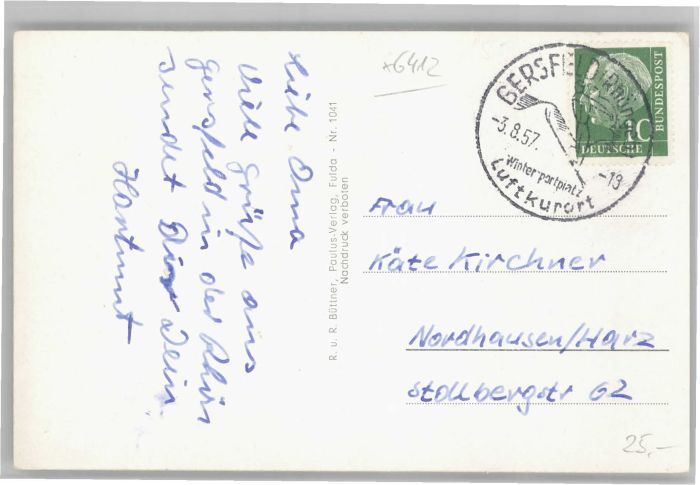 Liebe Oma
Viele Grüße aus
Gersfeld in der Rhön
sendet Dir Dein
Hartmut
R. u. R. Büttner, Paulus-Verlag, Fulda - Nr. 1041
Nachdruck verboten
*6412
GERSFELD (RHÖN)
-3.8.57.
-18
Wintersportplatz
Luftkurort
10
DEUTSCHE
BUNDESPOST
Frau
Käte Kirchner
Nordhausen/Harz
Stollbergstr 62
25,-